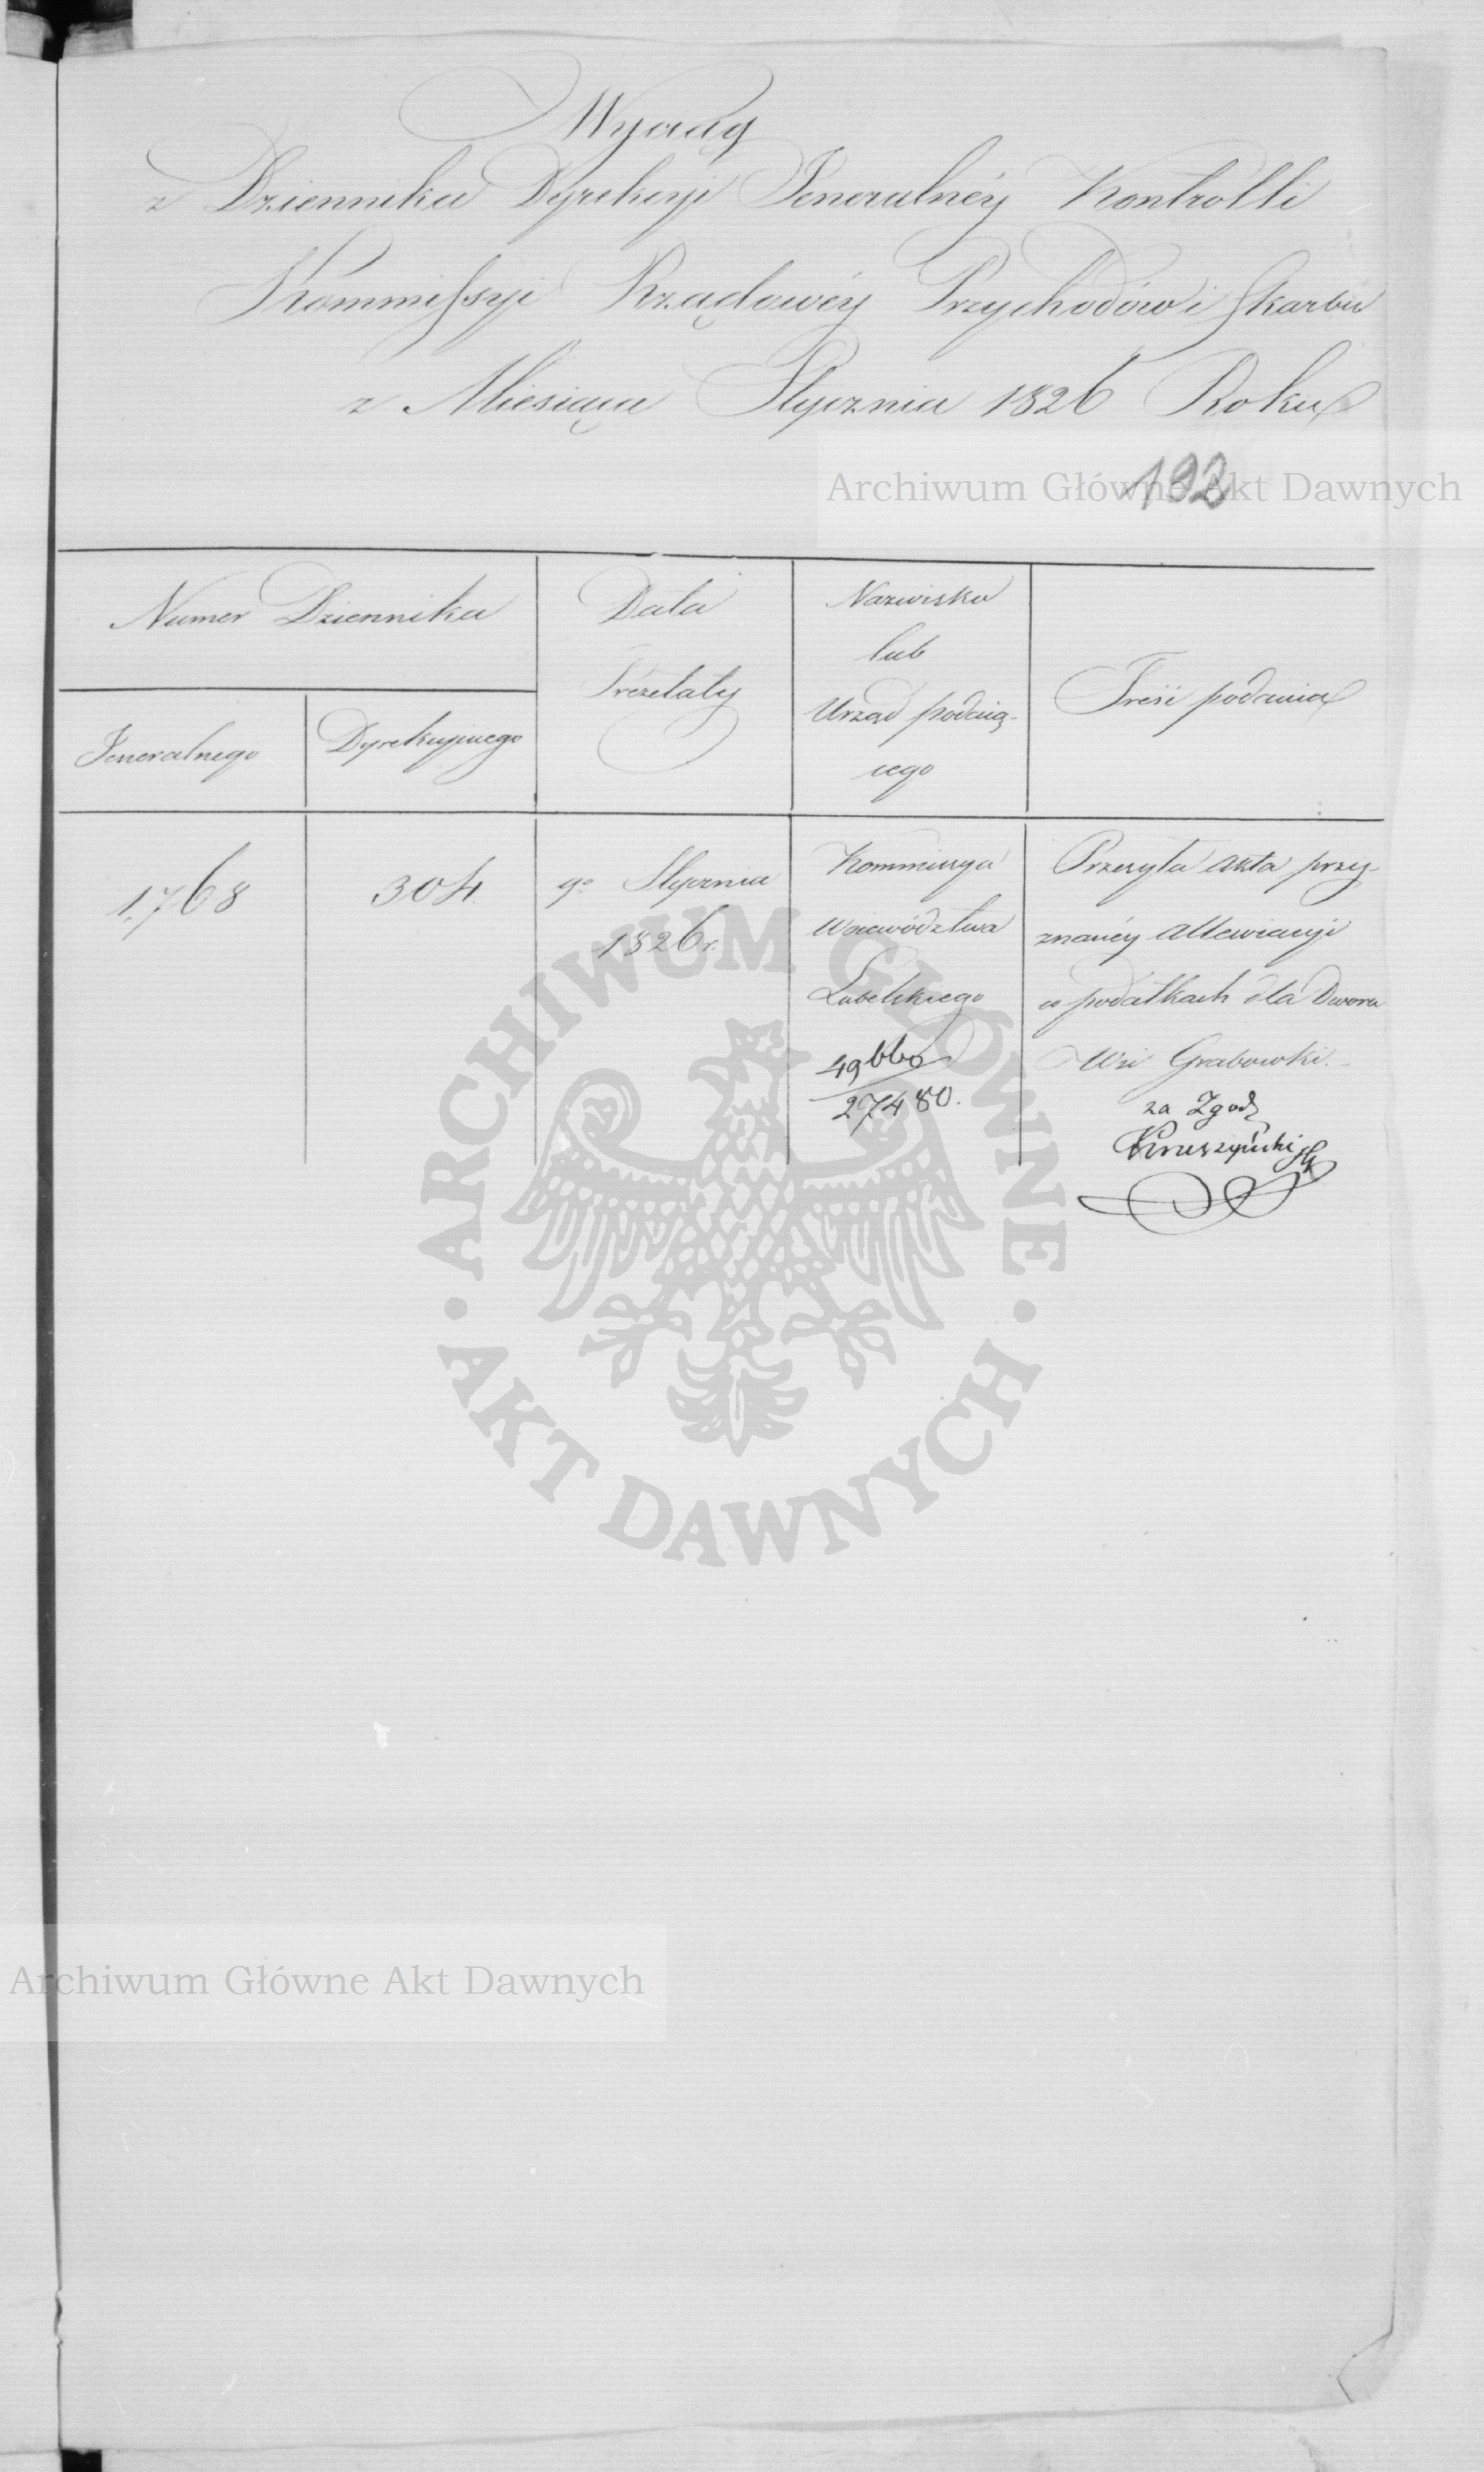 Wyciąg
z Dziennika Dyrekcyi Jeneralnéy Kontrolli
Kommissyi Rządowéy Przychodów i Skarbu
z Miesiąca Stycznia 1826 Roku
Archiwum Główne Akt Dawnych
192
Numer Dziennika
Jeneralnego
Dyrekcyinego
Data
Prezentaty
Nazwisko
lub
Urząd podaią-
cego
Treść podania
1,768
304.
9º Stycznia
1826 r.
Kommissya
Woiewództwa
Lubelskiego
49660
27480.
Przesyła akta przy-
znanéy allewiacyi
w podatkach dla Dworu
Wsi Grabowki.
za Zgod
Kruszyński
ARCHIWUM GŁÓWNE
AKT DAWNYCH
Archiwum Główne Akt Dawnych